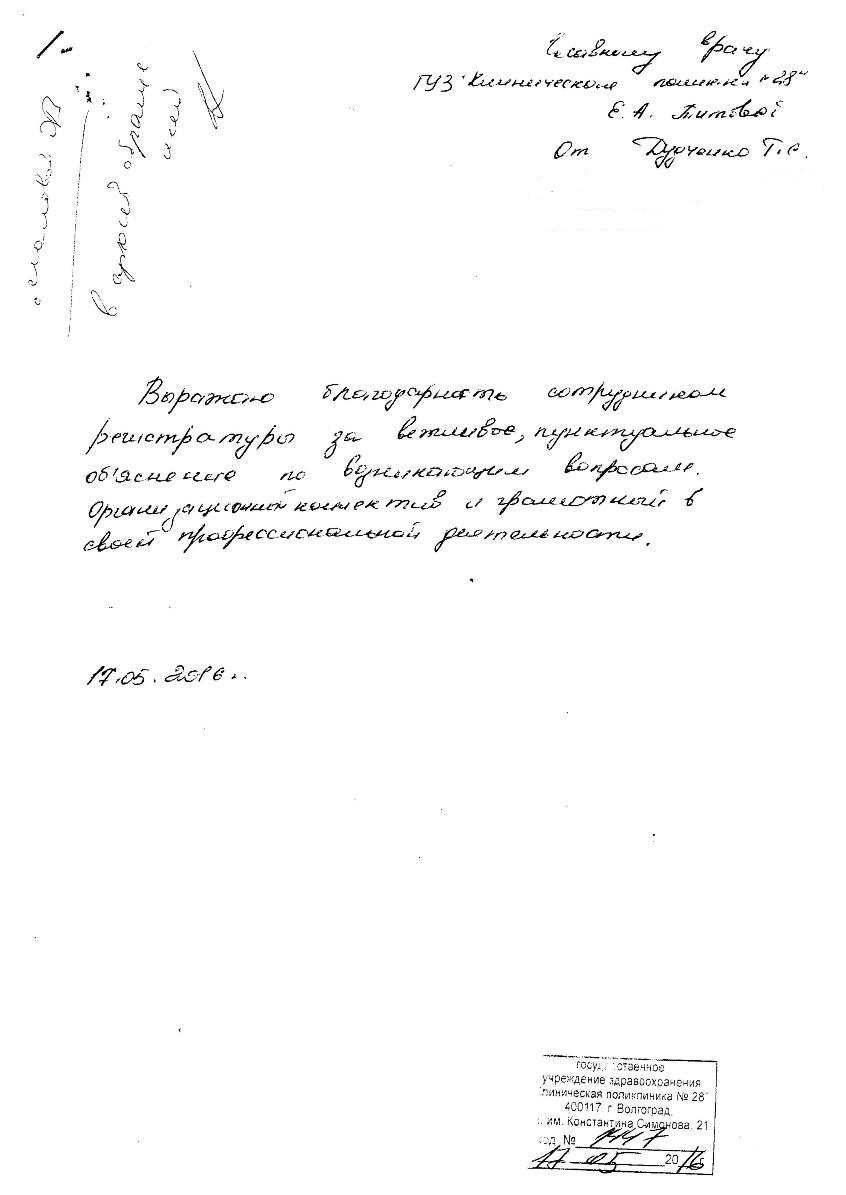 Главному врачу
ГУЗ "Клиническая поликл. "28"
Е. А. Титовой
От Дудченко Т.С.
в архив обраще
ний
Выражаю благодарность сотрудникам
регистратуры за вежливое, пунктуальное
объяснение по возникающим вопросам.
Организационный коллектив и грамотный в
своей профессиональной деятельности.
17.05.2016г.
государственное
учреждение здравоохранения
клиническая поликлиника № 28"
400117, г. Волгоград,
им. Константина Симонова, 21
код. №
17 05 2016